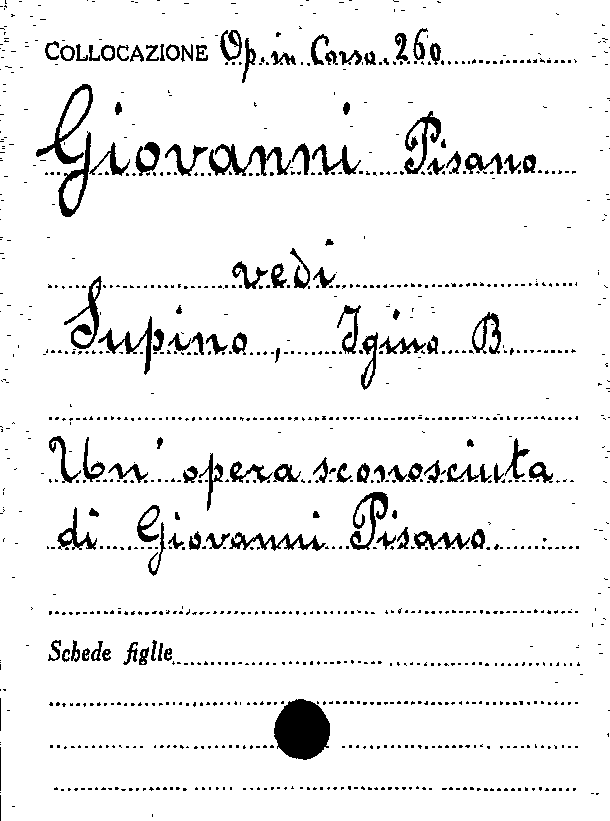 COLLOCAZIONE Op. in Corso. 260
Giovanni Pisano
vedi
Supino, Igino B.
Un' opera sconosciuta
di Giovanni Pisano.
Schede figlie